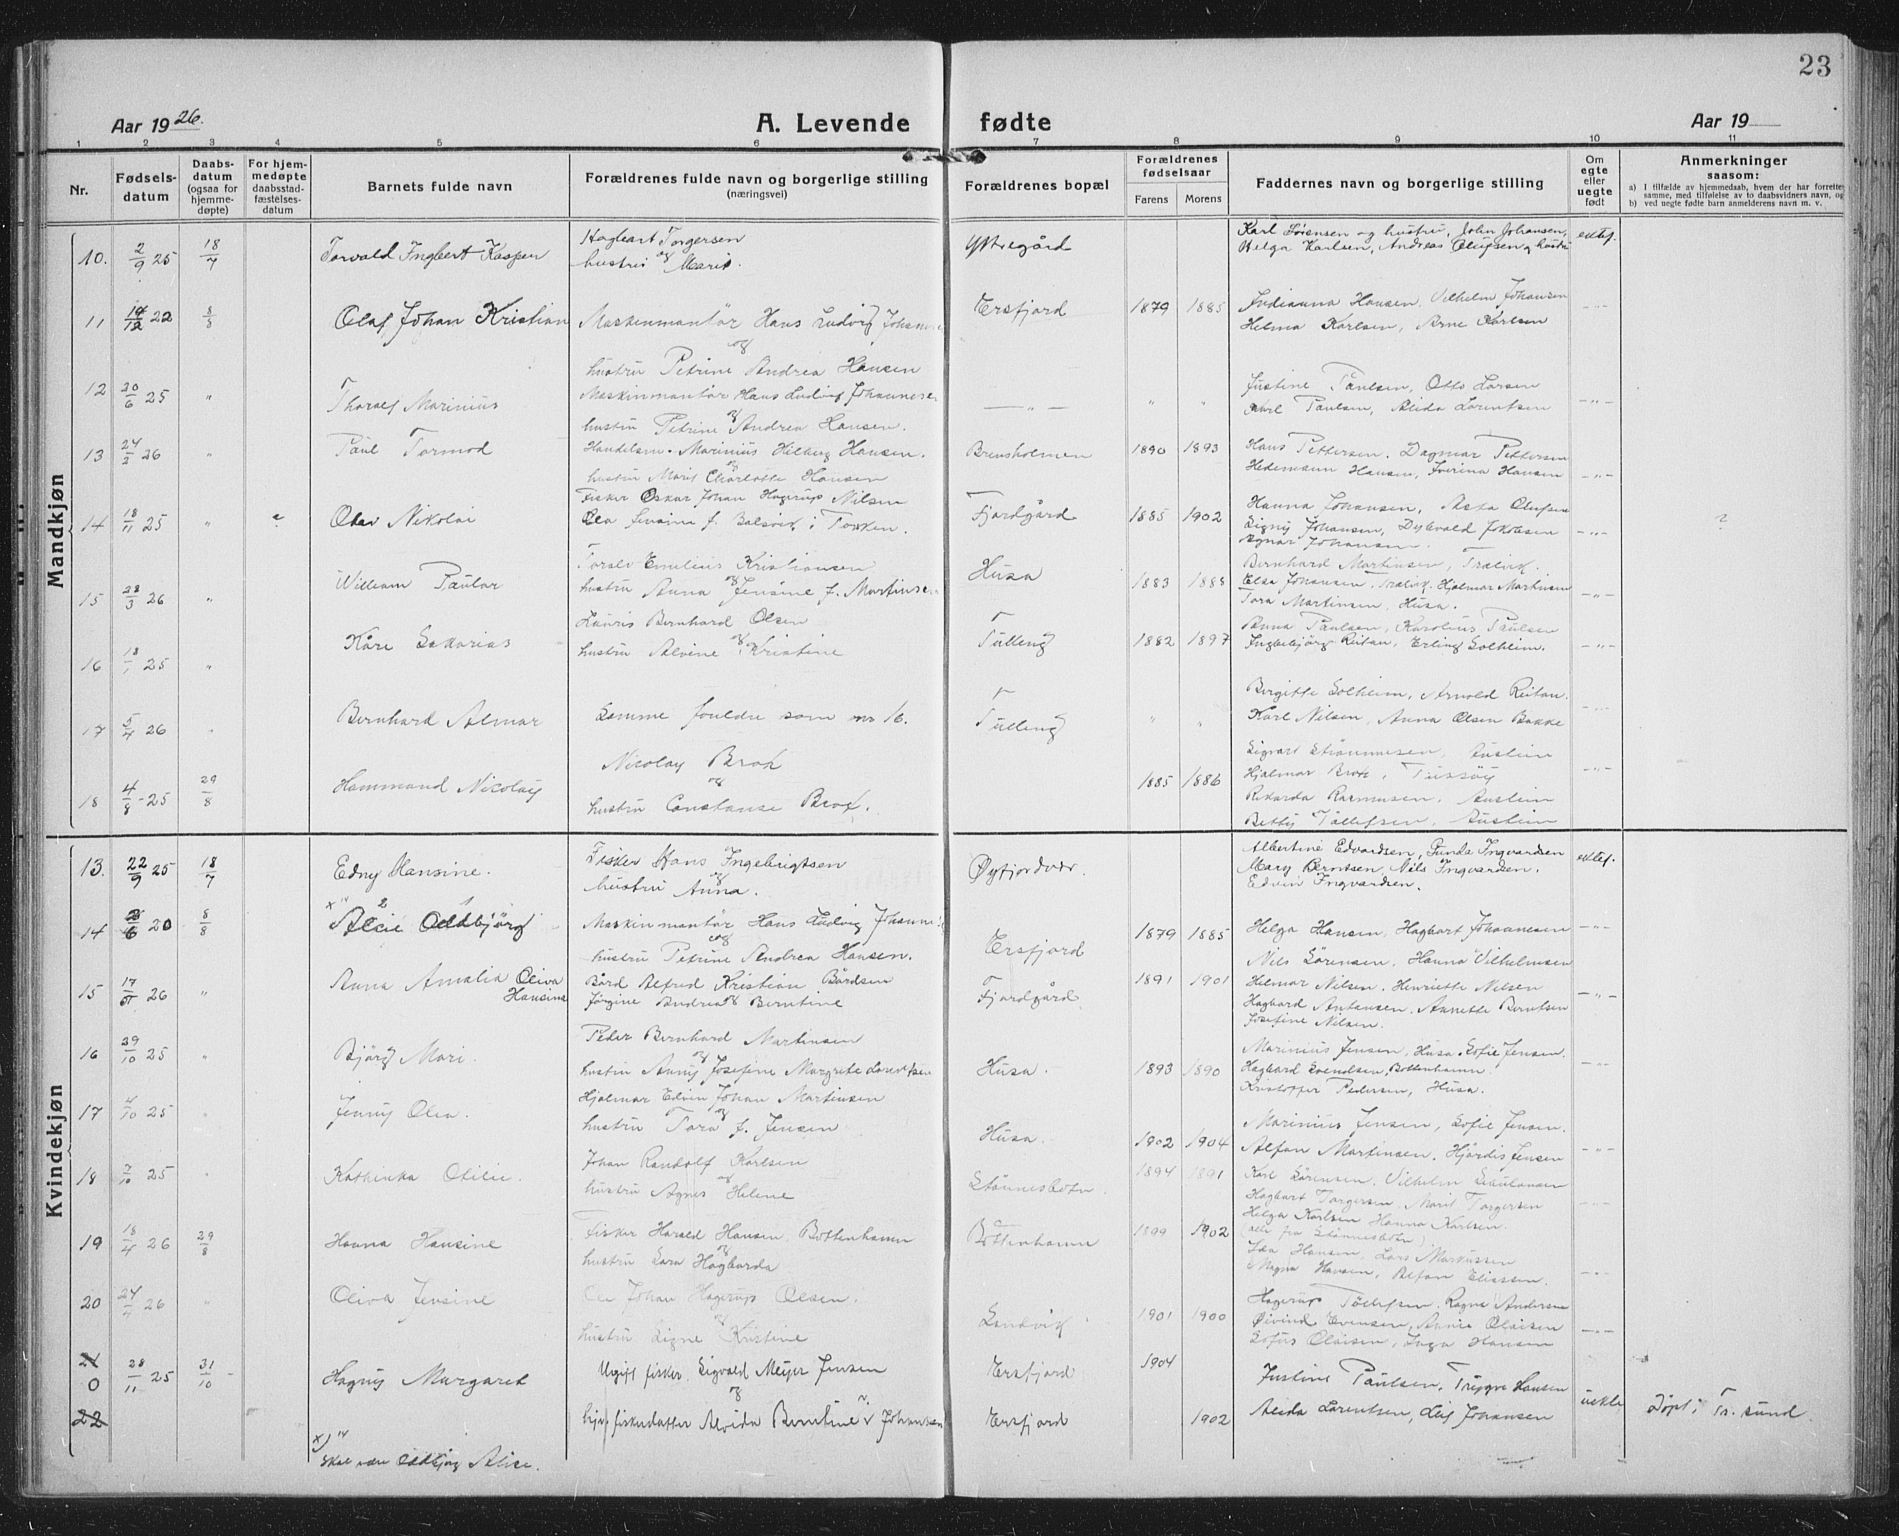 23
Aar 1926.
A. Levende fødte
Aar 19
1 2 3 4 5 6 7 8 9 10 11
Nr.
Fødsels-
datum
Daabs-
datum
(ogsaa for
hjemme-
døpte)
For hjem-
medøpte
daabsstad-
fæstelses-
datum
Barnets fulde navn
Forældrenes fulde navn og borgerlige stilling
(næringsvei)
Forældrenes bopæl
Forældrenes
fødselsaar
Farens Morens
Faddernes navn og borgerlige stilling
Om
egte
eller
uegte
født
Anmerkninger
saasom:
a) I tilfælde av hjemmedaab, hvem der har forrettet
samme, med tilføielse av to daabsvidners navn, og
b) ved uegte fødte barn anmelderens navn m. v.
Mandkjøn
10. 2/9 25 18/7 Torvald Ingbert Kasper
Hagbart Torgersen
og
hustru Marit.
Ytregård
Karl Sørensen og hustru, John Johansen,
Helga Karlsen, Andreas Olufsen og hustru
ektef.
11 12 22 8/8 Olaf Johan Kristian
Maskinmontør Hans Ludvig
og
hustru Petrine Andrea Hansen
Ersfjord 1879 1885
Indianna Hansen, Vilhelm Johansen
Helma Karlsen, Arne Karlsen
-"-
12 20/6 25 " Thoralf Marinius
Maskinmontør Hans Ludvig Johannesen
og
hustru Petrine Andrea Hansen.
-"- " "
Justine Paulsen, Otto Larsen
Karl Paulsen, Alida Lorentsen
-"-
13 24/2 26 " Paul Tormod
Handelsm. Marinius Hilberg Hansen.
og
hustru Marit Charlotte Hansen
Brensholmen 1890 1893
Hans Pettersen, Dagmar Pettersen
Hedemann Hansen, Hansen
-"-
14 18/11 25 " Olav Nikolai
Fisker Oskar Johan Hagerup Nilsen
f. Balsvik i Torsken.
Fjordgård 1885 1902
Hanna Johansen, Olufsen
Signy Johansen, Dybvald Jakobsen
Agnar Johansen.
-"- ?
15 28/3 26 " William Paular
Toralv Emelius Kristiansen
og
hustru Anna Jensine f. Martinsen
Husa 1883 1888
Bernhard Martinsen, Trælvik.
Elsa Johansen, Trælvik. Hjalmar Martinsen
Tora Martinsen, Husa.
-"-
16 25 " Kåre Sakarias
Lauris Bernhard Olsen
og
hustru Alvine Kristine
Tulleng 1882 1897
Anna Paulsen, Karolius Paulsen
Ingebjørg Reitan, Erling Solheim.
-"-
17 5/4 26 " Bernhard Almar
Samme foreldre som nr 16.
Tulleng " "
Birgitte Solheim, Arnold Reitan.
Karl Nilsen, Anna Olsen Bakke
-"-
18 4/8 - 25 29/8 Hammond Nicolay
Nicolay Brox
og
hustru Constanse Brox.
1885 1886
Sigvart Austein
Hjalmar Brox, Tussøy
Rikarda Rasmussen, Austein
Betty Tollefsen, Austein
-"-
Kvindekjøn
13. 22/9 25 18/7 Edny Hansine.
Fisker Hans Ingebrigtsen
og
hustru Anna.
Øyfjordvær.
Albertine Edvardsen, Gunda Ingvardsen
Mary Berntsen, Nils Ingvardsen,
Edvin Ingvardsen.
ektef.
14 6 20 8/8 x) Alcie Oddbjörg
2 1
Maskinmontør Hans Ludvig
og
hustru Petrine Andrea Hansen.
Ersfjord 1879 1885
Helga Hansen, Hagbart Johannesen
Nils Sörensen, Hanna Vilhelmsen
-"-
15 26 " Anna Amalia Oliva
Hansine
Bård Alfred Kristian Bårdsen
Jörgine Andrea Berntine
Fjordgård 1891 1901
Helmar Nilsen, Henriette Nilsen
Hagbard Antonsen, Annette Berntsen
Josefine Nilsen.
-"-
16 29/10 25 " Björg Mari.
Peder Bernhard Martinsen
og
hustru Anny Josefine Margrete Lorentsen
Husa. 1893 1890
Marinius Jensen, Husa. Sofie Jensen.
Hagbard Svendsen, Bottenhamn.
Kristoffer Pedersen, Husa.
-"-
17 4/10 25 " Jenny Olea.
Hjalmar Edvin Johan Martinsen
og
hustru Tora f. Jensen
Husa. 1902 1904
Marinius Jensen, Sofie Jensen.
Alfon Martinsen, Hjördis Jensen
-"-
18 7/10 25 " Kathinka Otilie.
Johan Randolf Karlsen
og
hustru Agnes Helene
Stönnesbotn. 1894 1891
Karl Sörensen, Vilhelm
Hagbart Torgersen, Marit Torgersen
Helga Karlsen Hanna Karlsen.
(alle fra Stönnesbotn)
-"-
19 18/4 26 29/8 Hanna Hansine
Fisker Harald Hansen, Bottenhamn
og
hustru Sara Hagbarda
Bottenhamn 1899 1902
Hansen, Lars Markussen
Magna Hansen, Alfon Eliassen.
-"-
20 26 " Oliva Jensine
Ole Johan Hagerup Olsen.
og
hustru Signe Kristine
Sandvik 1901 1900
Hagerup Tollefsen, Ragna Andersen
Øivind Evensen, Olaisen
Sofus Olaisen, Inga Hansen
-"-
21
0 28/11 25 31/10 Hagny Margaret
Ugift fisker Sigvald Meyer Jensen
og
fiskerdatter Alvida Berntine Johansen
Ersfjord 1904
Ersfjord 1902
Justine Paulsen, Trygve Hansen
Alida Lorentsen, Leif Johansen
uekte
Döpt i Tr. sund.
22
x) skal være Oddbjörg Alise.